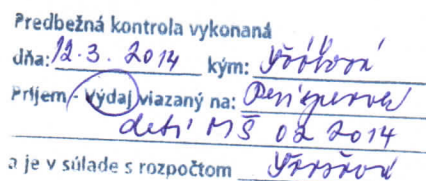 Predbežná kontrola vykonaná
dňa: 12.3. 2014 kým:
Príjem - Výdaj viazaný na:
detí MŠ 02 2014
a je v súlade s rozpočtom